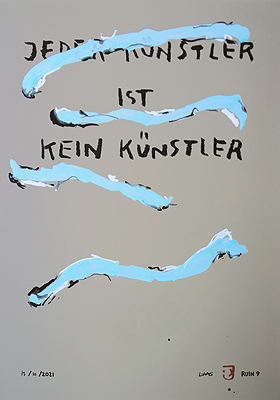 JEDER KÜNSTLER
IST
KEIN KÜNSTLER
/2021
RUIN 9